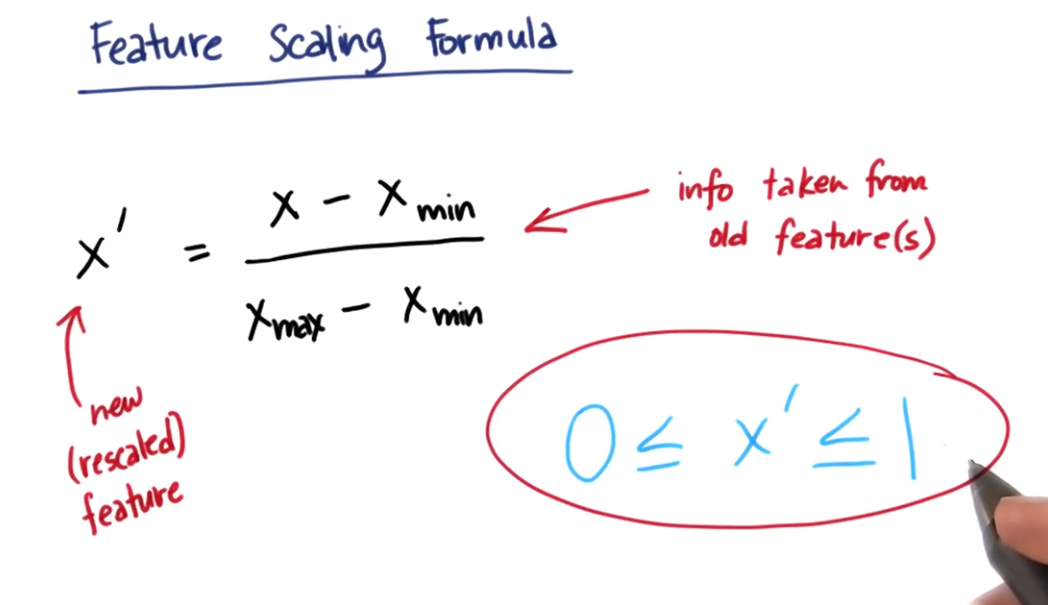 Feature Scaling Formula
x' = (x - x_min) / (x_max - x_min)
info taken from
old feature(s)
new
(rescaled)
feature
0 ≤ x' ≤ 1